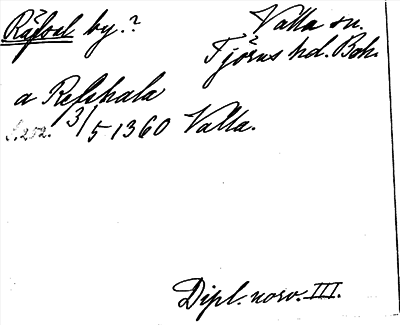 Räfsal by.? Valla sn.
Tjörns hd. Boh.
a Refshala
S. 252. 3/5 1360 Valla.
Dipl. norv. III.